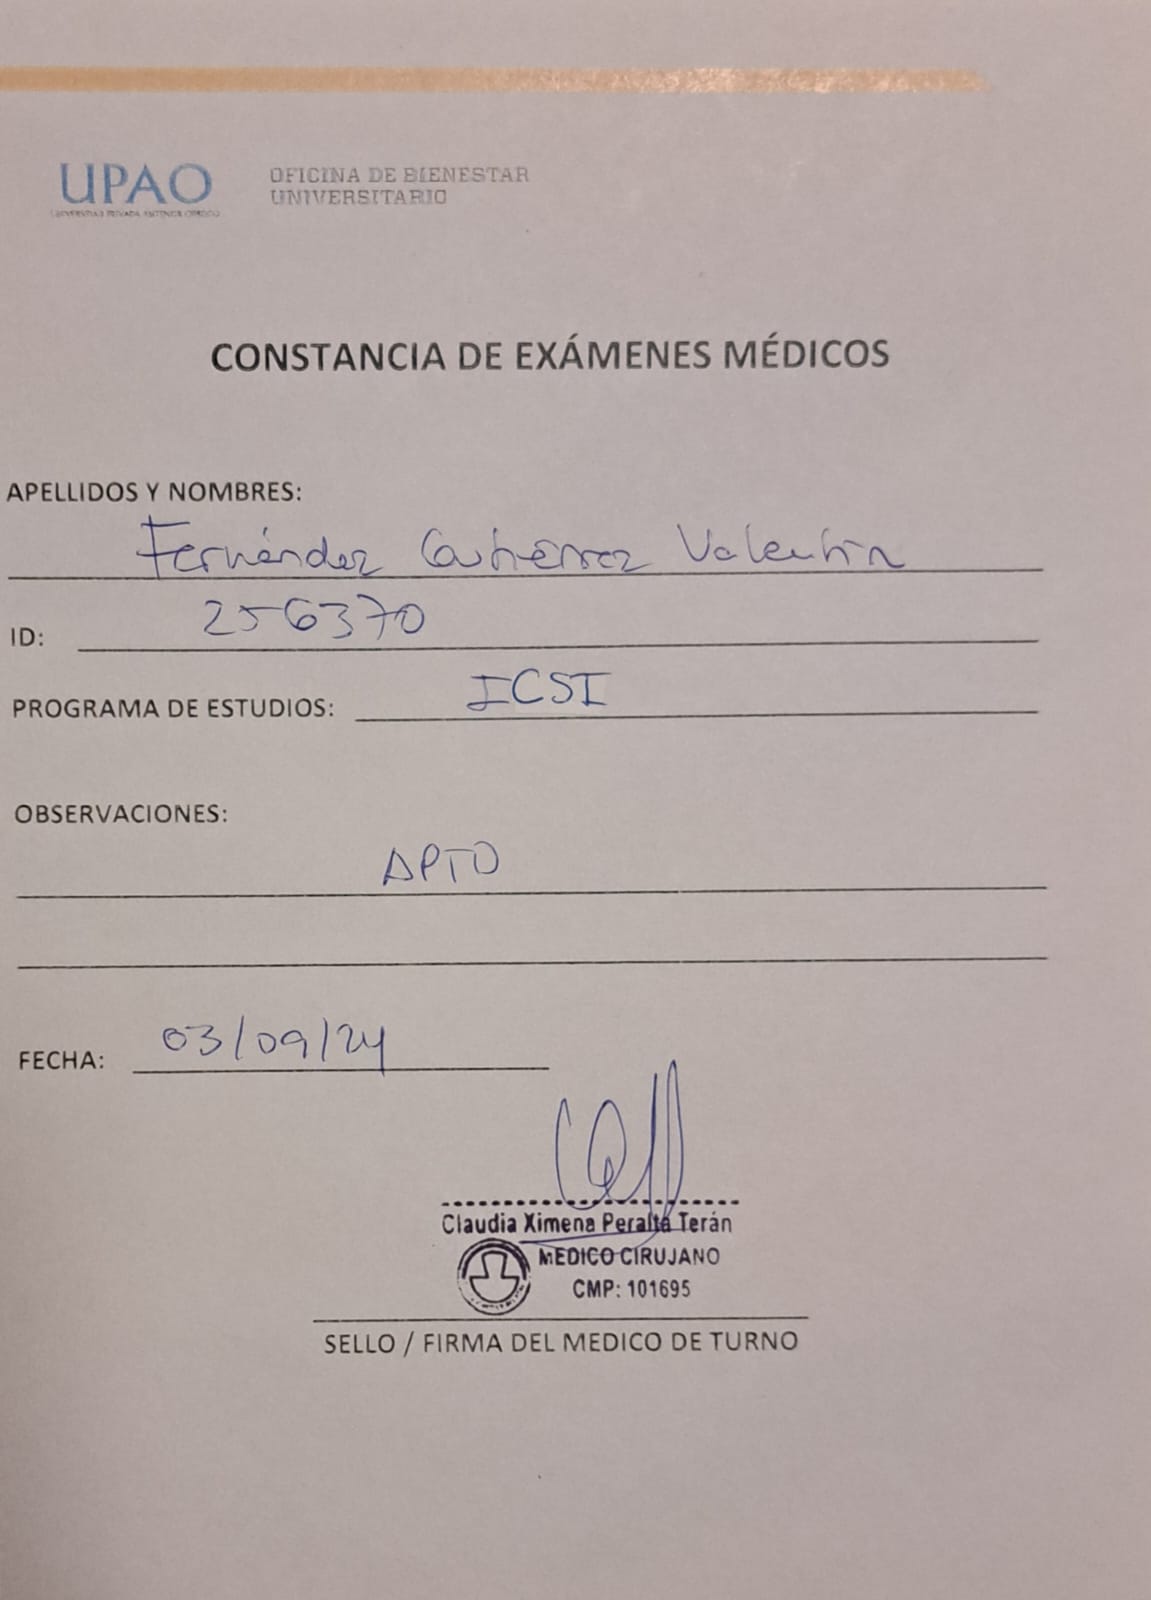 UPAO
UNIVERSIDAD PRIVADA ANTENOR ORREGO
OFICINA DE BIENESTAR
UNIVERSITARIO
CONSTANCIA DE EXÁMENES MÉDICOS
APELLIDOS Y NOMBRES:
Fernández Gutiérrez Valentín
ID: 256370
PROGRAMA DE ESTUDIOS: ICSI
OBSERVACIONES:
APTO
FECHA: 03/09/24
Claudia Ximena Peralta Terán
MEDICO CIRUJANO
CMP: 101695
SELLO / FIRMA DEL MEDICO DE TURNO